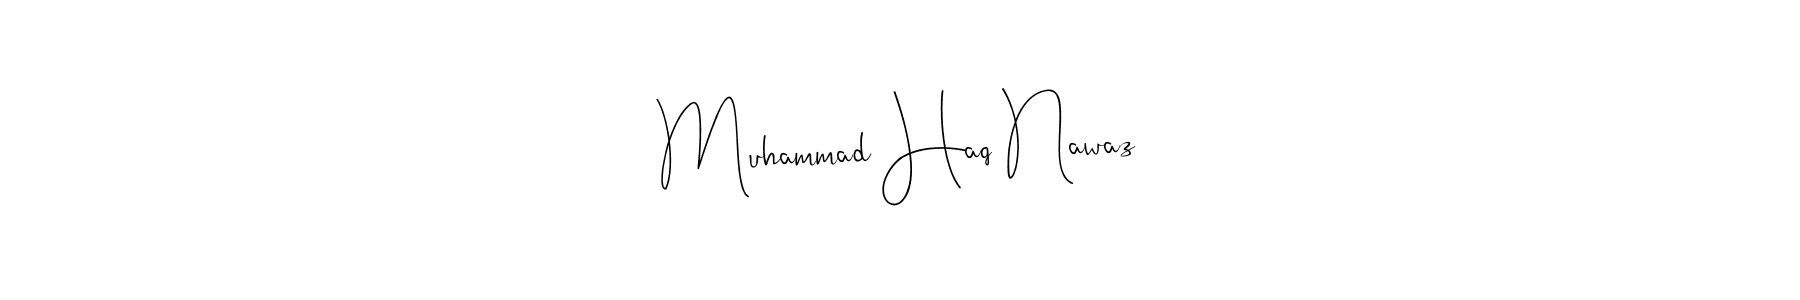 Muhammad Haq Nawaz